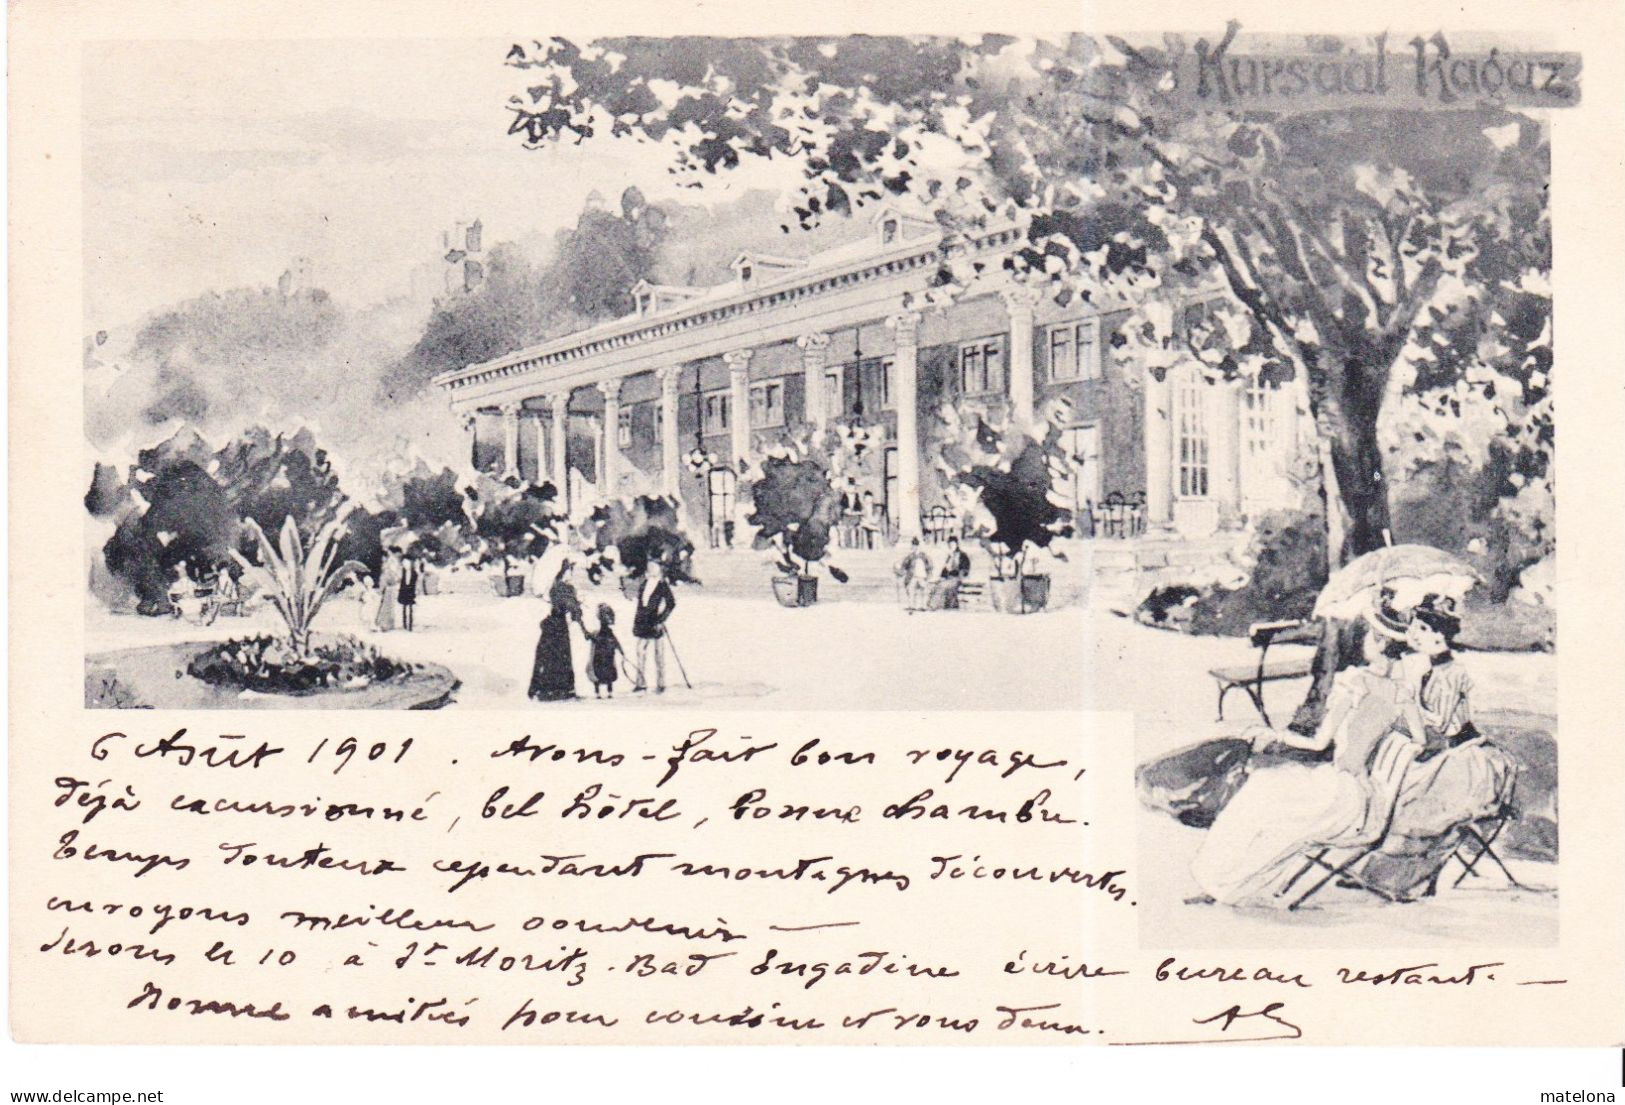 Kursaal Ragaz
6 Août 1901. Avons-fait bon voyage,
déjà excursionné, bel hôtel, bonne chambre.
Temps douteux cependant montagnes découvertes.
envoyons meilleur souvenir —
serons le 10 à St Moritz-Bad Engadine écrire bureau restant. —
bonne amitiés pour cousine et vous deux.
delcampe.net
matelona